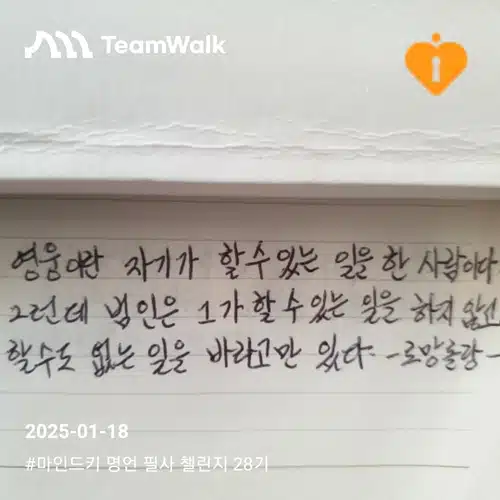 TeamWalk
영웅이란 자기가 할 수 있는 일을 한 사람이다
그런데 범인은 1가 할 수 있는 일을 하지 않고
할수도 없는 일을 바라고만 있다. -로망롤랑-
2025-01-18
#마인드키 명언 필사 챌린지 28기